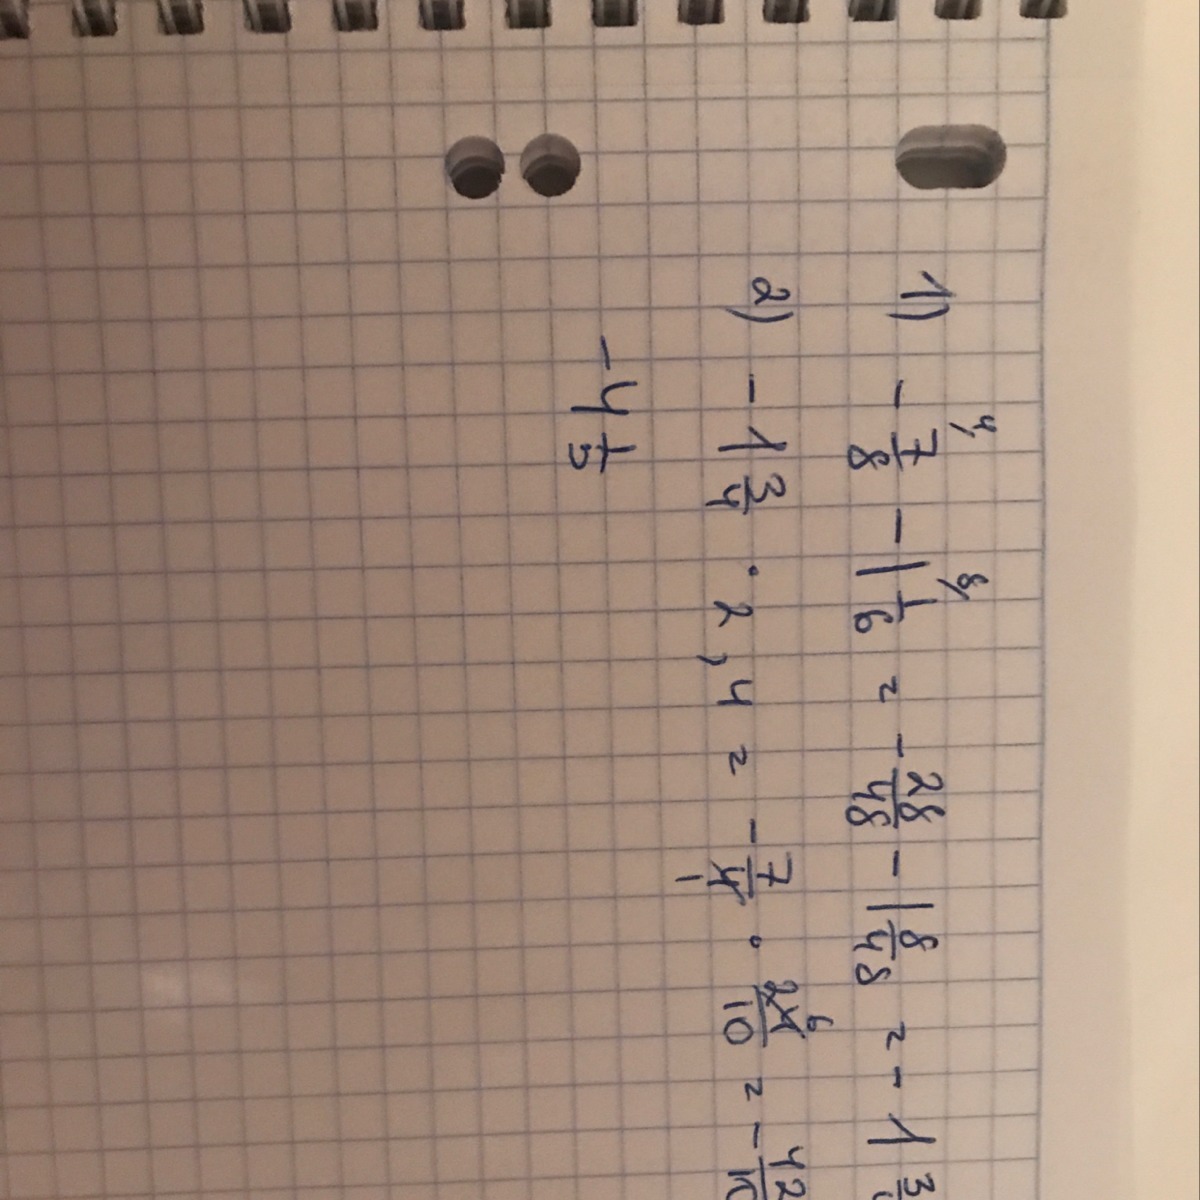 1) - 7/8 4/ - 1 1/6 8/ = - 28/48 - 1 8/48 = - 1 3
2) - 1 3/4 · 2,4 = - 7/4 1 · 24/10 6 = - 42/10
- 4 1/5